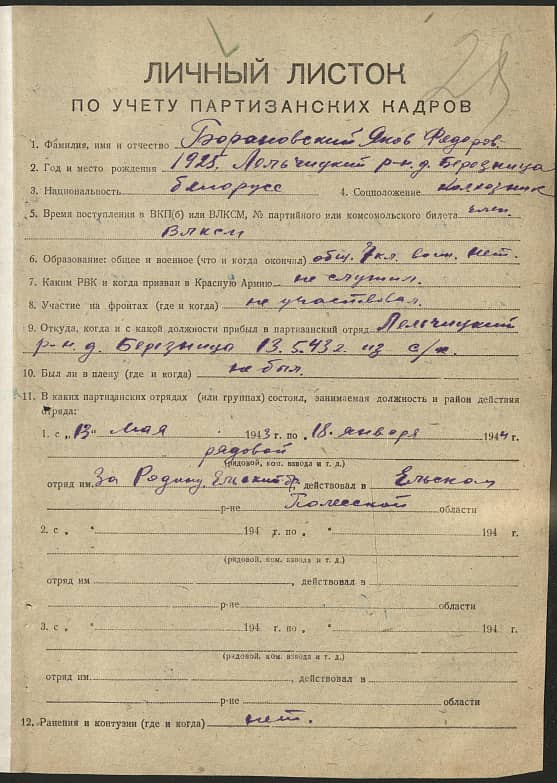 28
ЛИЧНЫЙ ЛИСТОК
ПО УЧЕТУ ПАРТИЗАНСКИХ КАДРОВ
1. Фамилия, имя и отчество Барановский Яков Федоров.
2. Год и место рождения 1925. Лельчицкий р-н. д. Березница
3. Национальность белорусс 4. Соцположение колхозник
5. Время поступления в ВКП(б) или ВЛКСМ, № партийного или комсомольского билета член
ВЛКСМ
6. Образование: общее и военное (что и когда окончил) общ. 7 кл. воен. нет.
7. Каким РВК и когда призван в Красную Армию не служил.
8. Участие на фронтах (где и когда) не участвовал.
9. Откуда, когда и с какой должности прибыл в партизанский отряд Лельчицкий
р-н. д. Березница 13.5.43г. из с/х.
10. Был ли в плену (где и когда) не был.
11. В каких партизанских отрядах (или группах) состоял, занимаемая должность и район действия
отряда:
1. с „13" мая 1943 г. по „18" января 1944 г.
рядовой
(рядовой, ком. взвода и т. д.)
отряд им. За Родину Ельский бр. действовал в Ельском
р-не Полесской области
2. с „ " 194 г. по „ " 194 г.
(рядовой, ком. взвода и т. д.)
отряд им , действовал в
р-не области
3. с „ " 194 г. по „ " 194 г.
(рядовой, ком. взвода и т. д.)
отряд им. , действовал в
р-не области
12. Ранения и контузии (где и когда) нет.